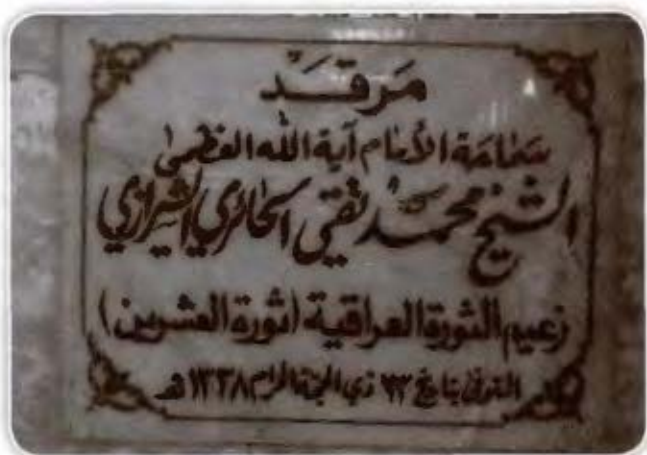 مَرقَد
سماحة الأمام آية الله العظمى
الشيخ محمد تقي الحائري الشيرازي
زعيم الثورة العراقية (ثورة العشرين)
المتوفى بتاريخ ٢٣ ذي الحجة الحرام ١٣٣٨ هـ